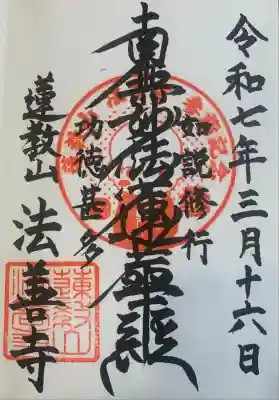 令和七年三月十六日
如説修行
南無妙法蓮華経
功徳甚多
蓮教山 法善寺